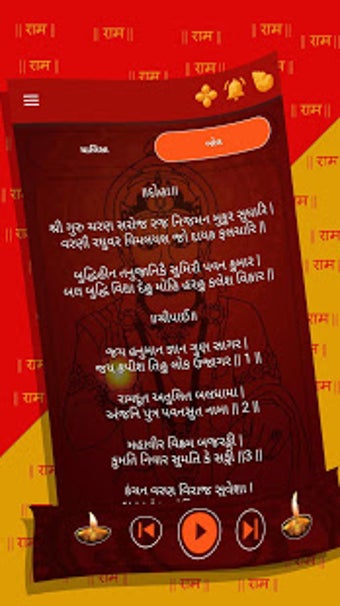 || राम ||
પ્લાલિસ્ટ
બોલ
||દોહા||
શ્રી ગુરુ ચરણ સરોજ રજ નિજમન મુકુર સુધારિ |
વરણૌ રઘુવર વિમલયશ જો દાયક ફલચારિ ||
બુદ્ધિહીન તનુજાનિકે સુમિરૌ પવન કુમાર |
બલ બુદ્ધિ વિદ્યા દેહુ મોહિ હરહુ કલેશ વિકાર ||
||ચૌપાઈ||
જય હનુમાન જ્ઞાન ગુણ સાગર |
જય કપીશ તિહુ લોક ઉજાગર || 1 ||
રામદૂત અતુલિત બલધામા |
અંજનિ પુત્ર પવનસુત નામા || 2 ||
મહાવીર વિક્રમ બજરઙ્ગી |
કુમતિ નિવાર સુમતિ કે સઙ્ગી ||3 ||
કંચન વરણ વિરાજ સુવેશા |